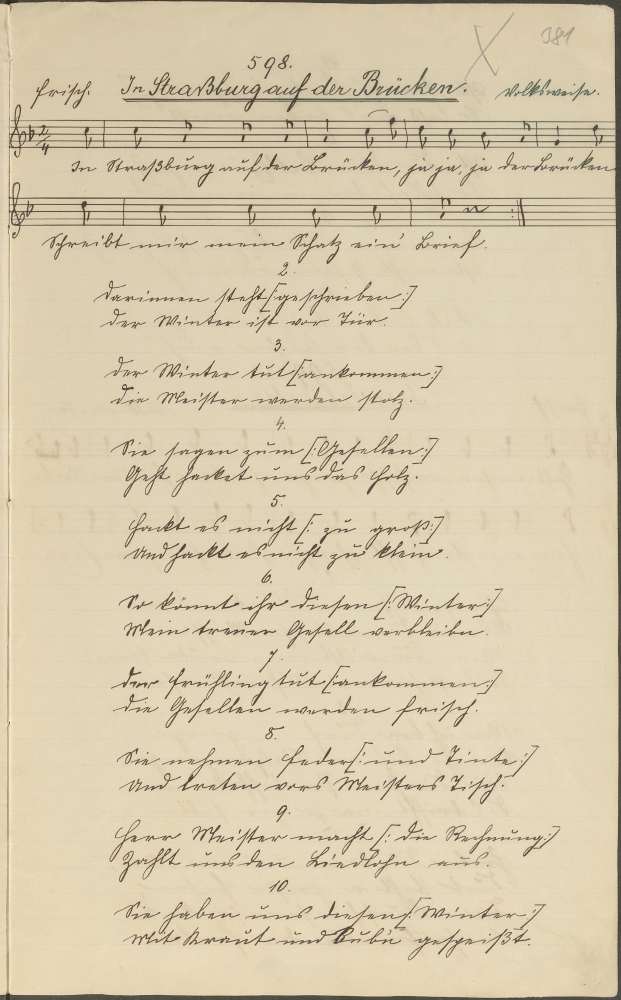 381
598.
frisch. In Straßburg auf der Brücken. Volksweise.
2/4
In Straßburg auf der Brücken, ja ja, ja der Brücken
Schreibt mir mein Schatz ein' Brief.
2.
Darinnen steht [: geschrieben :]
Der Winter ist vor Tür.
3.
Der Winter tut [: ankommen :]
Die Meister werden stolz.
4.
Sie sagen zum [: Gesellen :]
Geht hacket uns das Holz.
5.
Hackt es nicht [: zu groß :]
Und hackt es nicht zu klein.
6.
So könnt ihr diesen [: Winter :]
Mein treuer Gesell verbleibn.
7.
Der Frühling tut [: ankommen :]
Die Gesellen werden frisch.
8.
Sie nehmen Feder [: und Tinte :]
Und treten vors Meisters Tisch.
9.
Herr Meister macht [: die Rechnung :]
Zahlt uns den Liedlohn aus.
10.
Sie haben uns diesen [: Winter :]
Mit Kraut und Rub'n gespeißt.